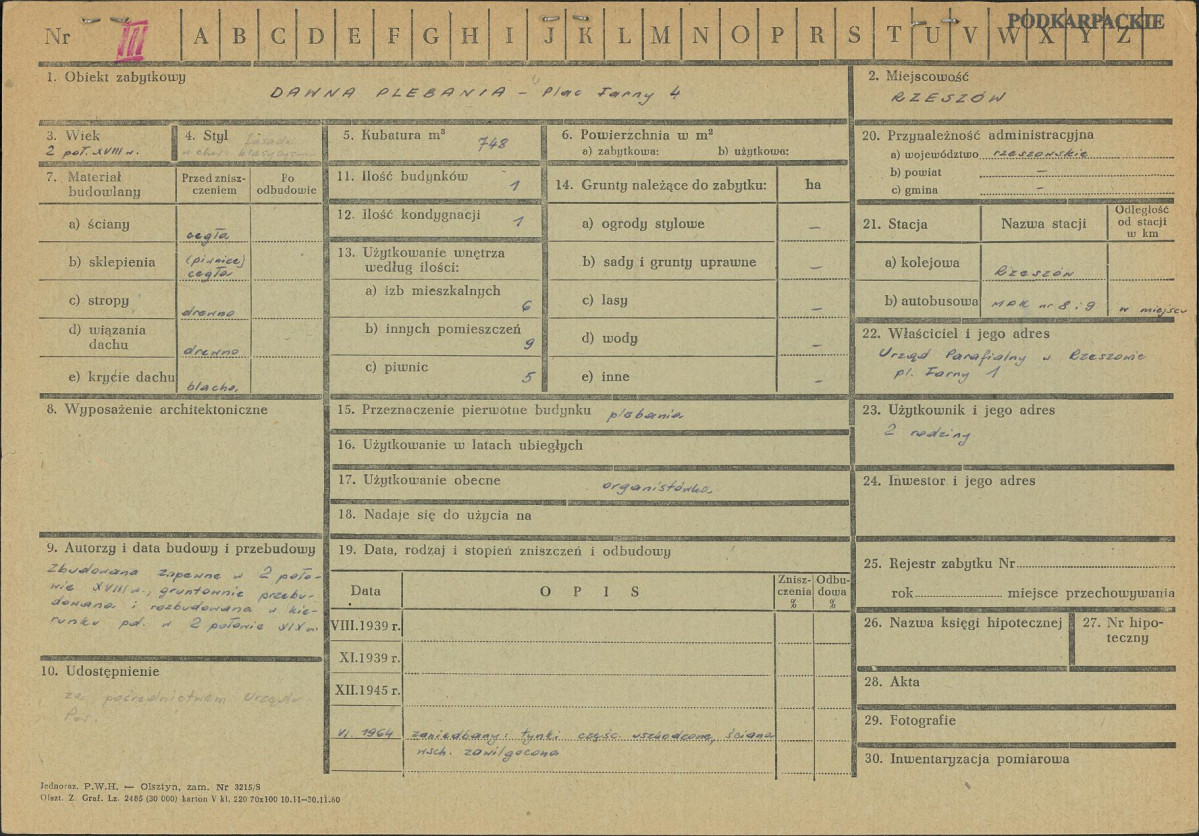 Nr III A B C D E F G H I J K L M N O P R S T U V W X Y Z
PODKARPACKIE
1. Obiekt zabytkowy
DAWNA PLEBANIA - Plac Farny 4
2. Miejscowość
RZESZÓW
3. Wiek
2 poł. XVIII w.
4. Styl
fasada
w char. klasycyzm
5. Kubatura m³
748
6. Powierzchnia w m²
a) zabytkowa: b) użytkowa:
7. Materiał budowlany
Przed zniszczeniem
Po odbudowie
a) ściany
cegła
b) sklepienia
(piwnice)
cegła
c) stropy
drewno
d) wiązania dachu
drewno
e) krycie dachu
blacha
8. Wyposażenie architektoniczne
9. Autorzy i data budowy i przebudowy
Zbudowana zapewne w 2 poło-
wie XVIII w., gruntownie przebu-
dowana i rozbudowana w kie-
runku pd. w 2 połowie XIX w.
10. Udostępnienie
za pośrednictwem Urzędu
Par.
11. Ilość budynków
1
12. Ilość kondygnacji
1
13. Użytkowanie wnętrza
według ilości:
a) izb mieszkalnych
6
b) innych pomieszczeń
9
c) piwnic
5
14. Grunty należące do zabytku:
ha
a) ogrody stylowe
–
b) sady i grunty uprawne
–
c) lasy
–
d) wody
–
e) inne
–
15. Przeznaczenie pierwotne budynku plebania
16. Użytkowanie w latach ubiegłych
17. Użytkowanie obecne organistówka
18. Nadaje się do użycia na
19. Data, rodzaj i stopień zniszczeń i odbudowy
Data
O P I S
Znisz-
czenia
%
Odbu-
dowa
%
VIII.1939 r.
XI.1939 r.
XII.1945 r.
VI. 1964 zaniedbany: tynki częśc. uszkodzone, ściana
wsch. zawilgocona
20. Przynależność administracyjna
a) województwo rzeszowskie
b) powiat –
c) gmina –
21. Stacja
Nazwa stacji
Odległość
od stacji
w km
a) kolejowa
Rzeszów
b) autobusowa
MPK nr 8 i 9
w miejscu
22. Właściciel i jego adres
Urząd Parafialny w Rzeszowie
pl. Farny 1
23. Użytkownik i jego adres
2 rodziny
24. Inwestor i jego adres
25. Rejestr zabytku Nr
rok miejsce przechowywania
26. Nazwa księgi hipotecznej
27. Nr hipo-
teczny
28. Akta
29. Fotografie
30. Inwentaryzacja pomiarowa
Jednoraz. P.W.H. — Olsztyn, zam. Nr 3215/S
Olszt. Z. Graf. Lz. 2485 (30 000) karton V kl. 220 70x100 10.11—30.11.60